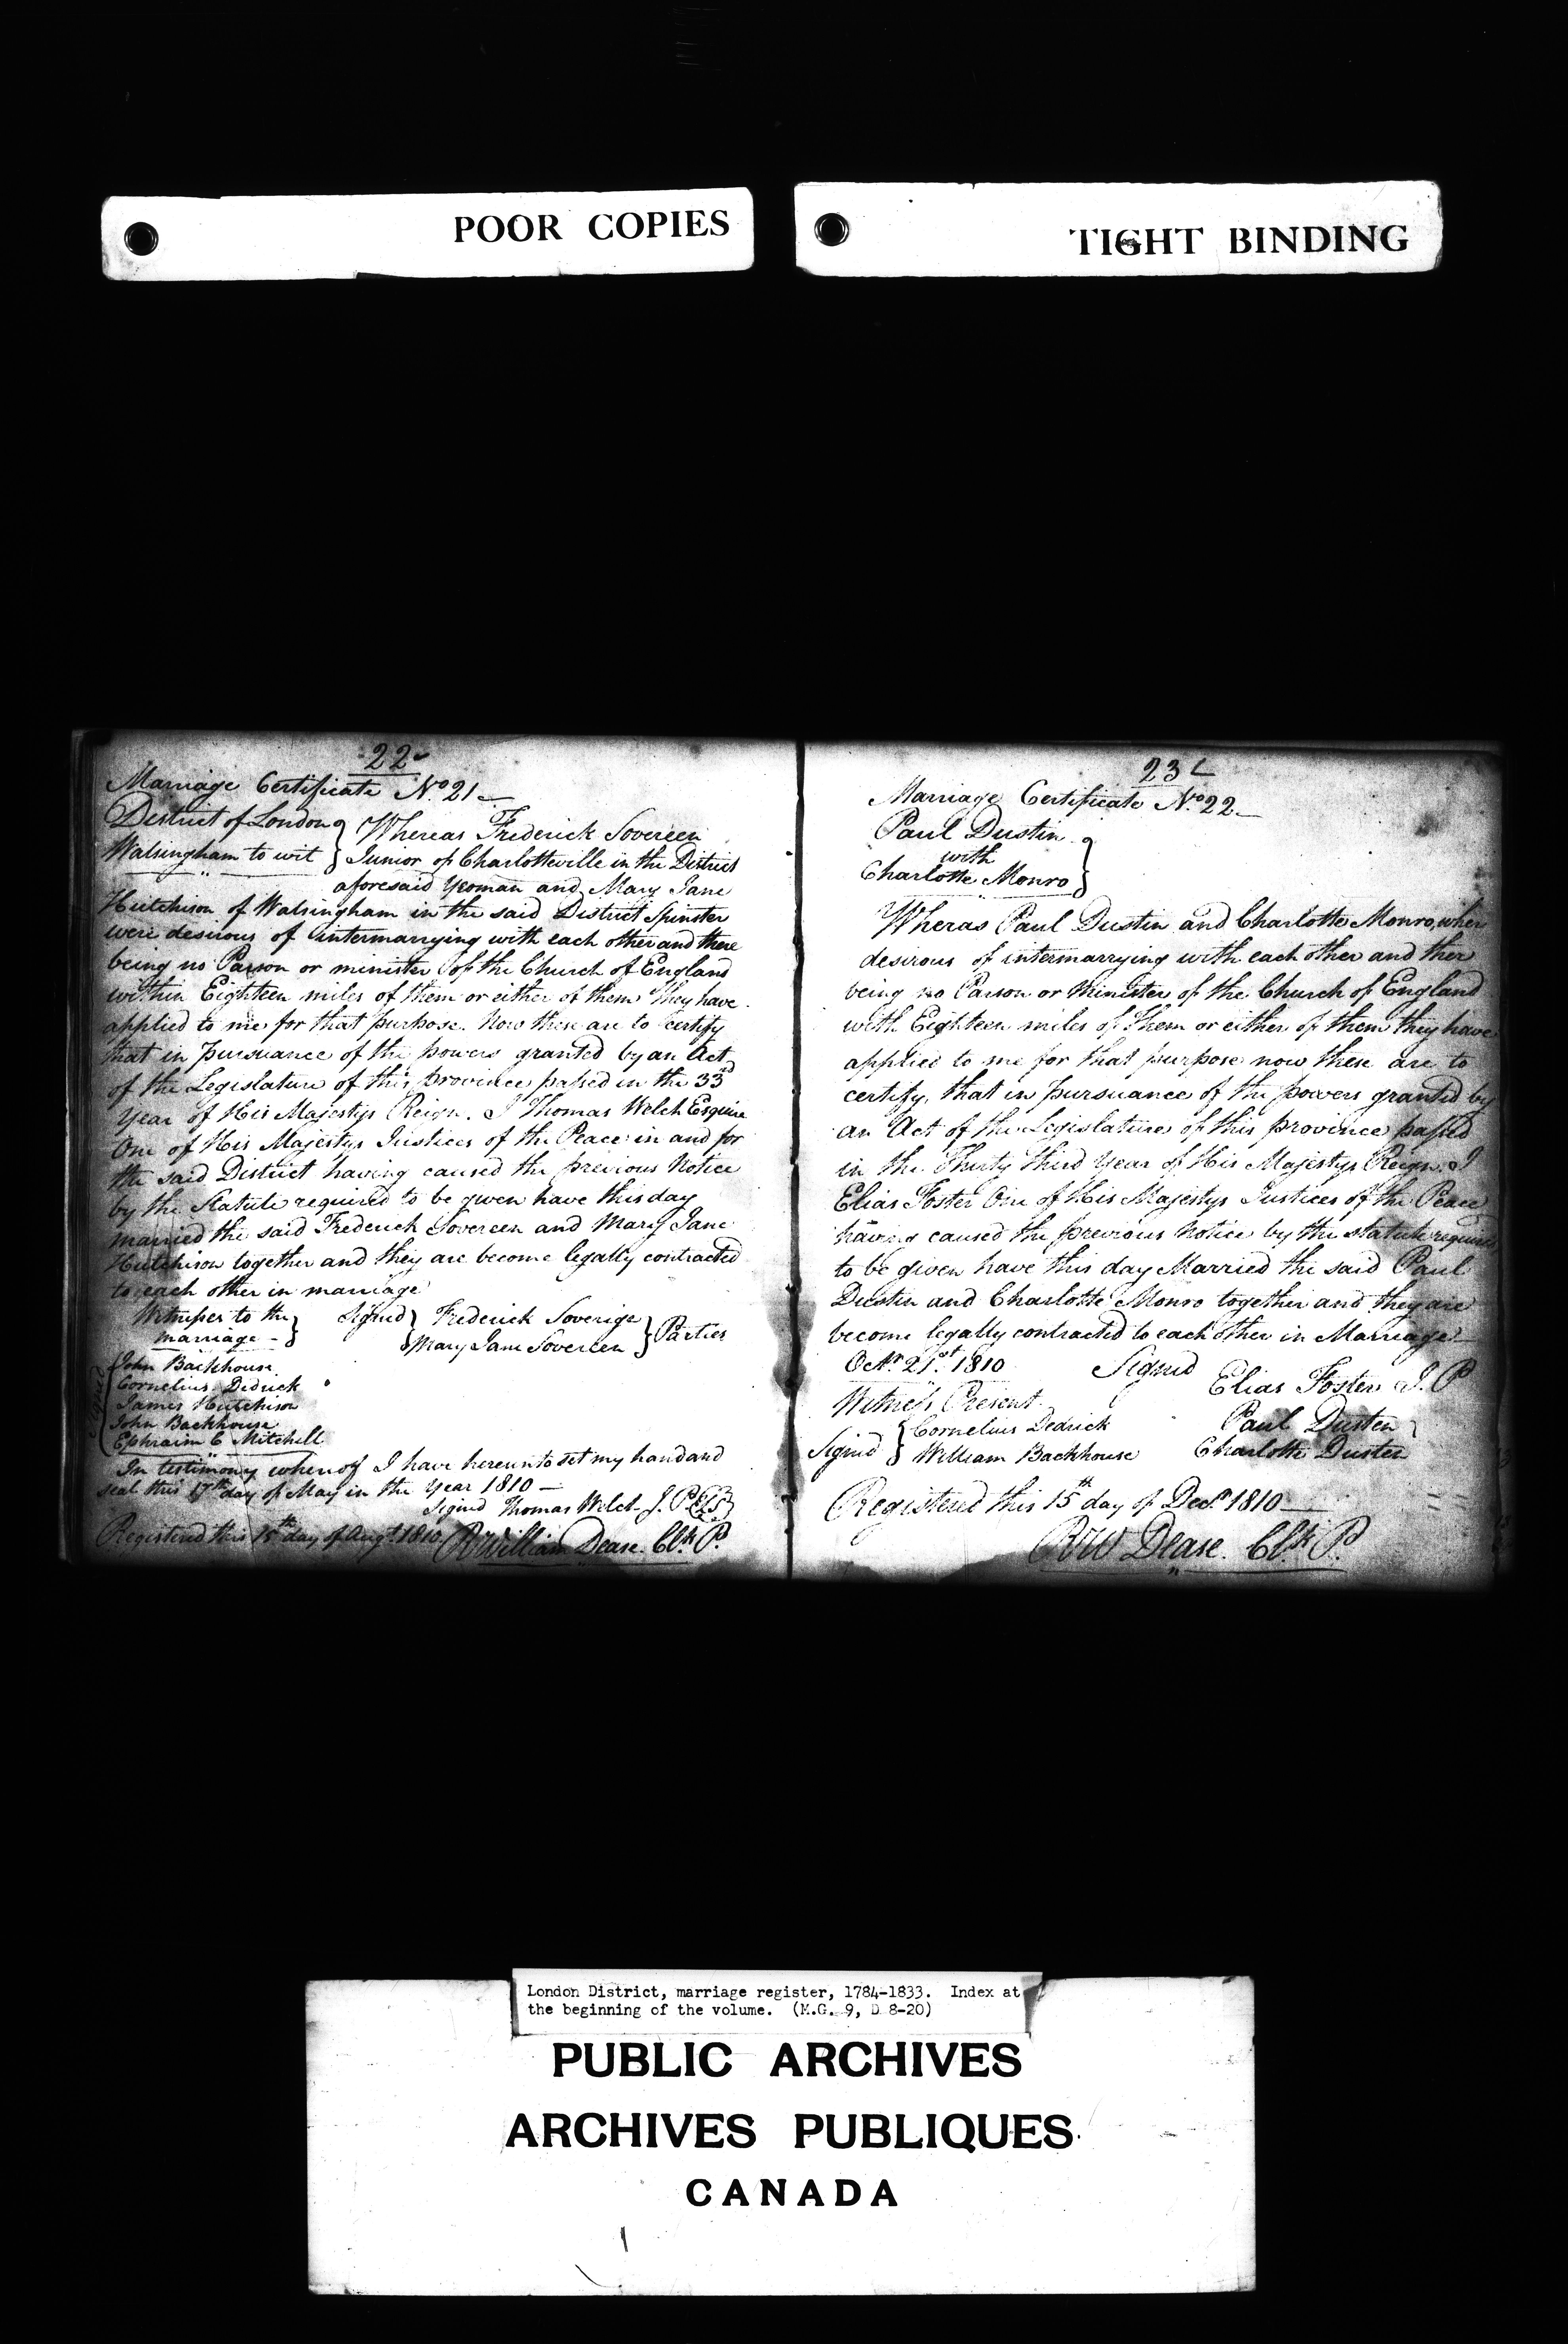 POOR COPIES
TIGHT BINDING
22
Marriage Certificate No 21
District of London } Whereas Frederick Sovereen
Walsingham to wit } Junior of Charlotteville in the District
aforesaid Yeoman and Mary Jane
Hutchison of Walsingham in the said District Spinster
were desirous of intermarrying with each other and there
being no Parson or minister of the Church of England
within Eighteen miles of them or either of them They have
applied to me for that purpose. Now these are to certify
that in pursuance of the powers granted by an Act
of the Legislature of this province passed in the 33d
Year of His Majestys Reign. I Thomas Welch Esquire
One of His Majestys Justices of the Peace in and for
the said District having caused the previous Notice
by the Statute required to be given have this day
married the said Frederick Sovereen and Mary Jane
Hutchison together and they are become legally contracted
to each other in marriage
Witnesses to the } Signed } Frederick Soverige } Parties
marriage - } Mary Jane Sovereen }
Signed
John Backhouse
Cornelius Dedrick
James Hutchison
John Backhouse
Ephraim C Mitchell
In testimony whereof I have hereunto set my hand and
seal this 17th day of May in the Year 1810 —
Signed Thomas Welch J. P. {LS}
Registered this 15th day of Augt 1810. RWilliam Dease. Clk. P.
23
Marriage Certificate No 22
Paul Dustin }
with
Charlotte Monro }
Wheras Paul Dustin and Charlotte Monro, wher
desirous of intermarrying with each other and ther
being no Parson or Minister of the Church of England
with Eighteen miles of them or either of them they have
applied to me for that purpose now these are to
certify, that in pursuance of the powers granted by
an Act of the Legislature of this province passed
in the Thirty Third Year of His Majestys Reign. I
Elias Foster One of His Majestys Justices of the Peace
having caused the previous Notice by the statute required
to be given have this day Married the said Paul
Dustin and Charlotte Monro together and they are
become legally contracted to each other in Marriage
Octr. 21st 1810 Signed Elias Foster J. P
Witness Present
Signed { Cornelius Dedrick Paul Dusten }
William Backhouse Charlotte Dusten
Registered this 15th day of Decr 1810
RW Dease. Clk P.
London District, marriage register, 1784-1833. Index at
the beginning of the volume. (M.G. 9, D 8-20)
PUBLIC ARCHIVES
ARCHIVES PUBLIQUES
CANADA